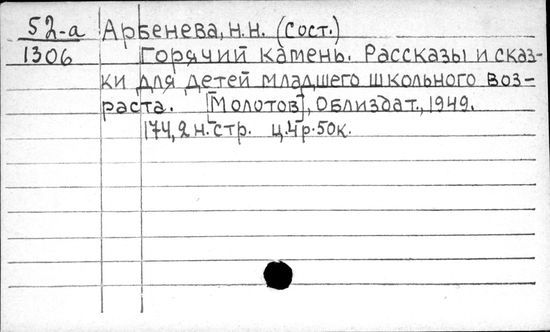 52-а Арбенева, Н.Н. (Сост.)
1306 Горячий камень. Рассказы и сказ-
ки для детей младшего школьного воз-
раста. [Молотов], Облиздат., 1949.
174,2 н.стр. ц.4р.50к.